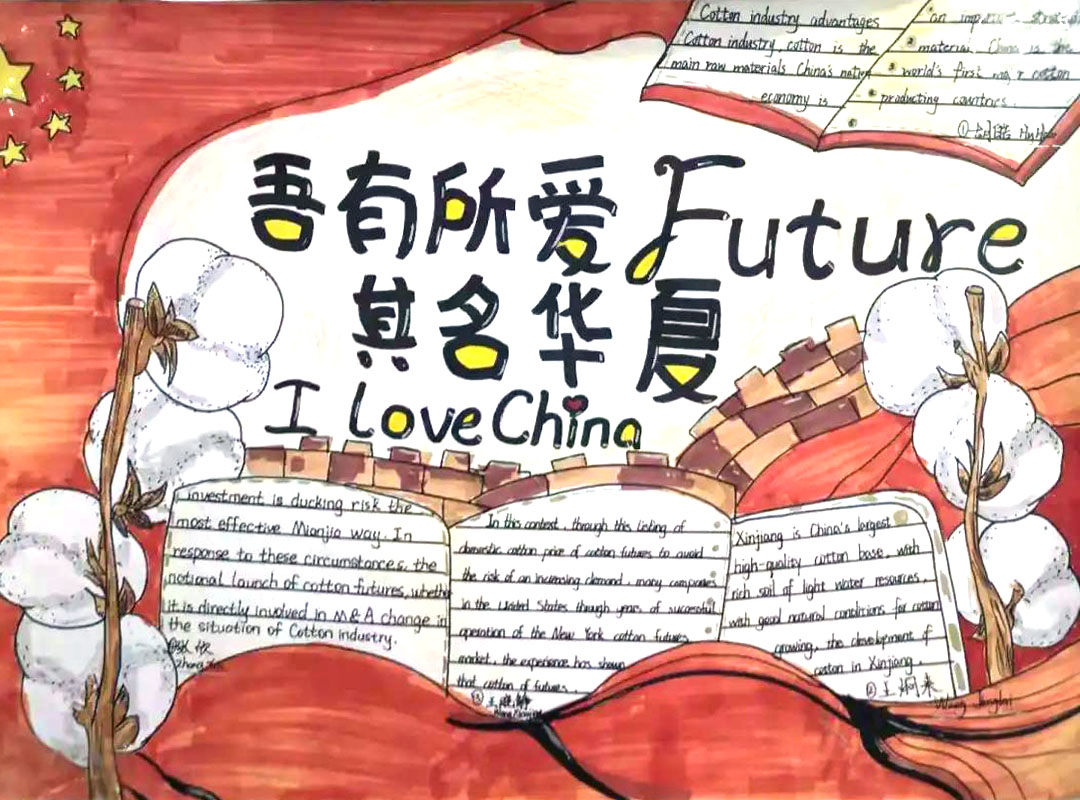 Cotton industry advantages
Cotton industry, cotton is the
main raw materials China's
economy is
an
material, China is the
world's first cotton
producting countries.
吾有所爱
Future
其名华夏
I Love China
investment is ducking risk the
most effective Mianjia way. In
response to these circumstances, the
national launch of cotton futures, whether
it is directly involved in M&A change in
the situation of Cotton industry.
In this context, through this listing of
domestic cotton price of cotton futures to avoid
the risk of an increasing demand, many companies
in the United States through years of successful
operation of the New York cotton futures
market, the experience has shown
that cotton of futures.
Xinjiang is China's largest
high-quality cotton base, with
rich soil of light water resources,
with good natural conditions for cotton
growing, the development of
cotton in Xinjiang